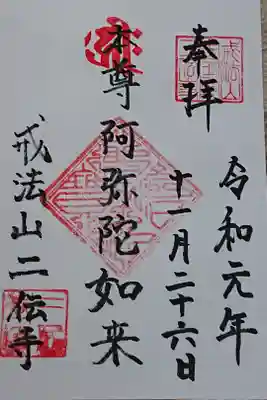 奉拝
令和元年
十一月二十六日
本尊 阿弥陀如来
戒法山二伝寺